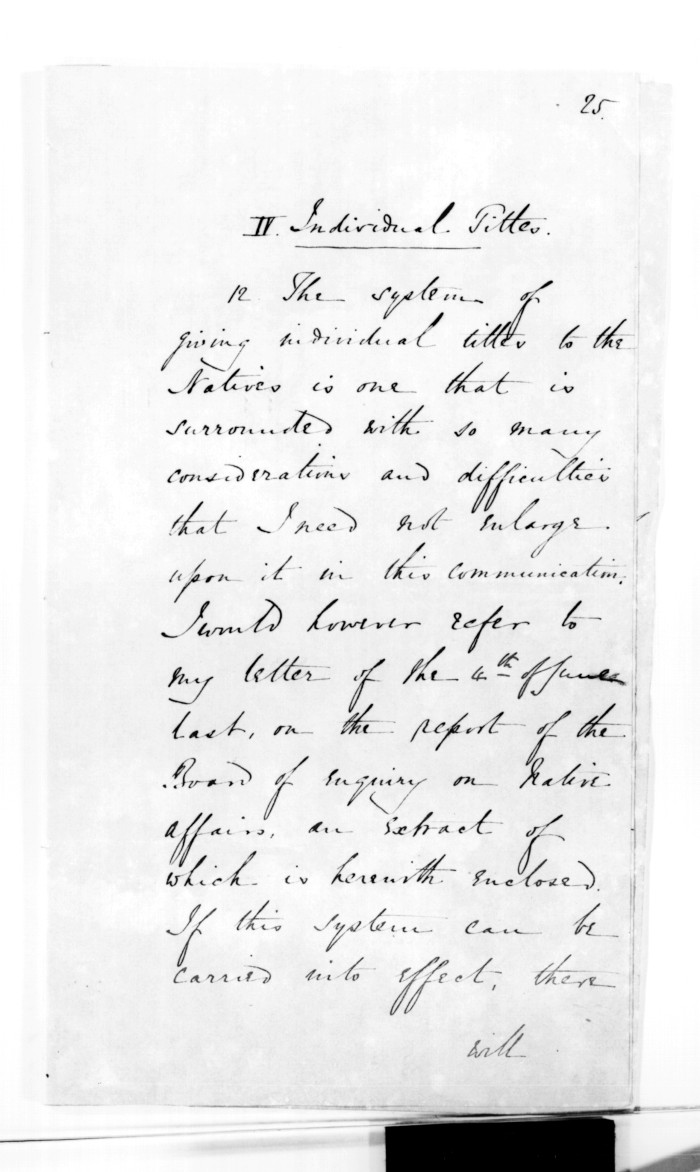 25.
IV. Individual Titles.
12 The system of
giving individual titles to the
Natives is one that is
surrounded with so many
considerations and difficulties
that I need not enlarge
upon it in this communication.
I would however refer to
my letter of the 4th of June
last, on the report of the
Board of enquiry on Native
affairs, an extract of
which is herewith enclosed.
If this system can be
carried into effect, there
will